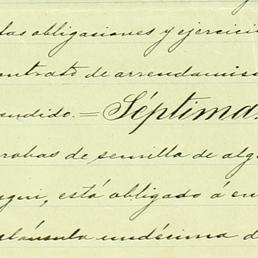 las obligaciones y ejercici
ontrato de arrendamie
endido.=Séptima.
robas de semilla de alg
egui, está obligado á en
cláusula undécima d